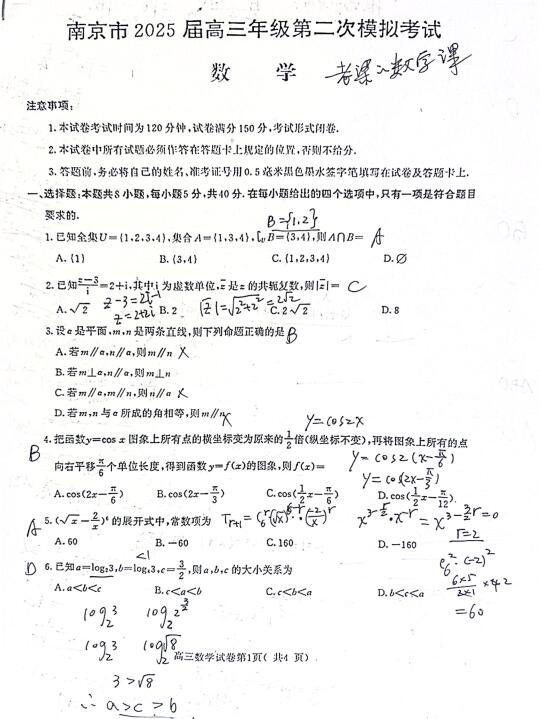 南京市 2025 届高三年级第二次模拟考试
数 学 老梁的数学课
注意事项:
1. 本试卷考试时间为120分钟,试卷满分150分,考试形式闭卷.
2. 本试卷中所有试题必须作答在答题卡上规定的位置,否则不给分.
3. 答题前,务必将自己的姓名、准考证号用0.5毫米黑色墨水签字笔填写在试卷及答题卡上.
一、选择题:本题共8小题,每小题5分,共40分.在每小题给出的四个选项中,只有一项是符合题目
要求的.
B={1,2}
1. 已知全集U={1,2,3,4},集合A={1,3,4},∁ᵤB={3,4},则A∩B= A
A. {1} B. {3,4} C. {1,2,3,4} D. ∅
2. 已知(z-3)/i=2+i,其中i为虚数单位,z̄是z的共轭复数,则|z̄|= C
A. √2 B. 2 C. 2√2 D. 8
z-3=2i-1
z=2+2i |z̄|=√(2²+2²)=2√2
3. 设α是平面,m,n是两条直线,则下列命题正确的是 B
A. 若m∥α,n∥α,则m∥n ×
B. 若m⊥α,n∥α,则m⊥n
C. 若m∥α,m∥n,则n∥α ×
D. 若m,n与α所成的角相等,则m∥n ×
y=cos2x
B 4. 把函数y=cos x图象上所有点的横坐标变为原来的1/2倍(纵坐标不变),再将图象上所有的点
y=cos2(x-π/6)
向右平移π/6个单位长度,得到函数y=f(x)的图象,则f(x)=
y=cos(2x-π/3)
A. cos(2x-π/6) B. cos(2x-π/3) C. cos(1/2x-π/6) D. cos(1/2x-π/12).
A 5. (√x-2/x)⁶的展开式中,常数项为 Tᵣ₊₁=C₆ʳ(√x)⁶⁻ʳ·(-2/x)ʳ x^(3-r/2)·x^(-r)=x^(3-3/2r)=0
A. 60 B. -60 C. 160 D. -160
r=2
C₆²·(-2)²
<1
D 6. 已知a=log₂3,b=log₄3,c=3/2,则a,b,c的大小关系为
A. a<b<c B. c<a<b C. c<b<a D. b<c<a
6×5/2×1 ×4
=60
log₂3 log₂2^(3/2)
log₂3 log₂√8
高三数学试卷第1页( 共4 页)
3>√8
∴ a>c>b